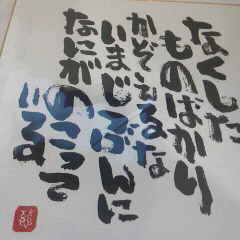 なくした
ものばかり
かぞえるな
いまじぶんに
なにが
のこって
いる